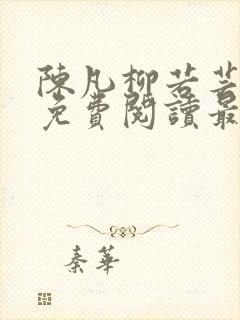 陳凡柳若若
免費閱讀最
秦華